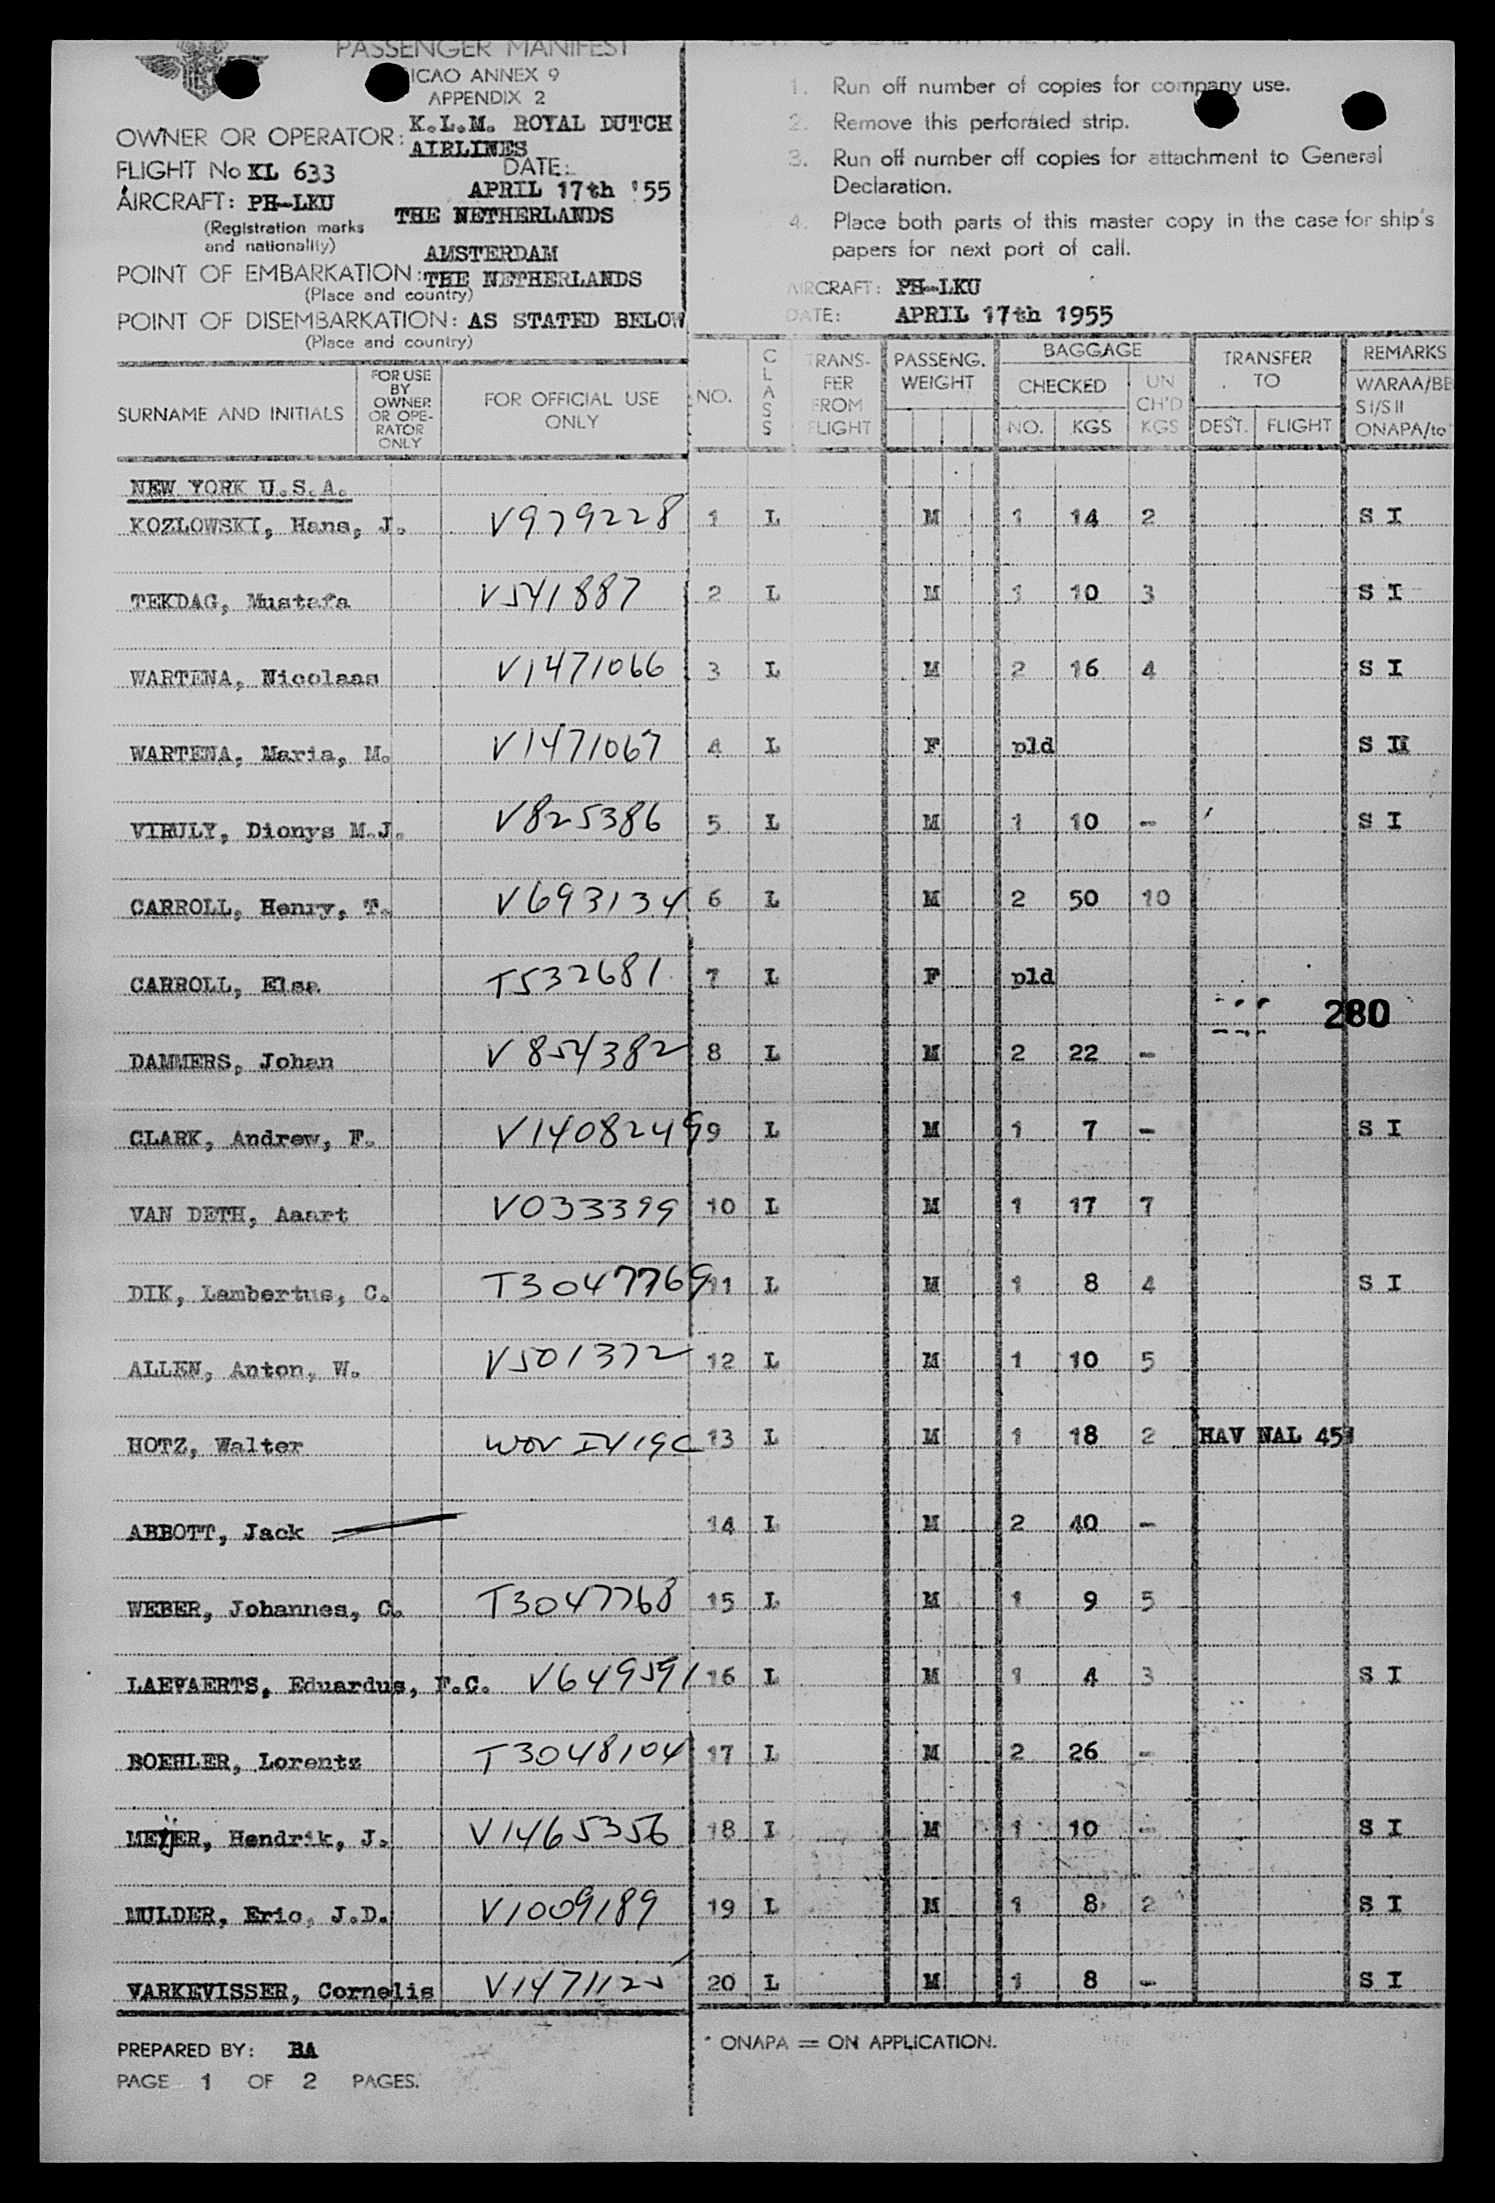 PASSENGER MANIFEST
ICAO ANNEX 9
APPENDIX 2
OWNER OR OPERATOR: K.L.M. ROYAL DUTCH
AIRLINES
FLIGHT No KL 633 DATE:
APRIL 17th '55
AIRCRAFT: PH-LKU THE NETHERLANDS
(Registration marks
and nationality)
AMSTERDAM
POINT OF EMBARKATION: THE NETHERLANDS
(Place and country)
POINT OF DISEMBARKATION: AS STATED BELOW
(Place and country)
1. Run off number of copies for company use.
2. Remove this perforated strip.
3. Run off number off copies for attachment to General
Declaration.
4. Place both parts of this master copy in the case for ship's
papers for next port of call.
AIRCRAFT: PH-LKU
DATE: APRIL 17th 1955
SURNAME AND INITIALS
FOR USE
BY
OWNER
OR OPE-
RATOR
ONLY
FOR OFFICIAL USE
ONLY
NO.
CLASS
TRANS-
FER
FROM
FLIGHT
PASSENG.
WEIGHT
BAGGAGE
CHECKED
NO. KGS
UN
CH'D
KGS
TRANSFER
TO
DEST. FLIGHT
REMARKS
WARAA/BE
S I/S II
ONAPA/to
NEW YORK U.S.A.
KOZLOWSKI, Hans, J. V979228 1 L M 1 14 2 S I
TEKDAG, Mustafa V541887 2 L M 1 10 3 S I
WARTENA, Nicolaas V1471066 3 L M 2 16 4 S I
WARTENA, Maria, M. V1471067 4 L F pld S II
VIRULY, Dionys M.J. V825386 5 L M 1 10 - S I
CARROLL, Henry, T. V693134 6 L M 2 50 10
CARROLL, Elsa T532681 7 L F pld
280
DAMMERS, Johan V854382 8 L M 2 22 -
CLARK, Andrew, F. V1408249 9 L M 1 7 - S I
VAN DETH, Aaart V033399 10 L M 1 17 7
DIK, Lambertus, C. T3047769 11 L M 1 8 4 S I
ALLEN, Anton, W. V501372 12 L M 1 10 5
HOTZ, Walter 13 L M 1 18 2 HAV NAL 451
ABBOTT, Jack 14 L M 2 40 -
WEBER, Johannes, C. T3047768 15 L M 1 9 5
LAEVAERTS, Eduardus, F.C. V649591 16 L M 1 4 3 S I
BOEHLER, Lorentz T3048104 17 L M 2 26 -
MEIJER, Hendrik, J. V1465356 18 L M 1 10 - S I
MULDER, Eric, J.D. V1009189 19 L M 1 8 2 S I
VARKEVISSER, Cornelis V1471125 20 L M 1 8 - S I
PREPARED BY: BA
PAGE 1 OF 2 PAGES.
* ONAPA = ON APPLICATION.